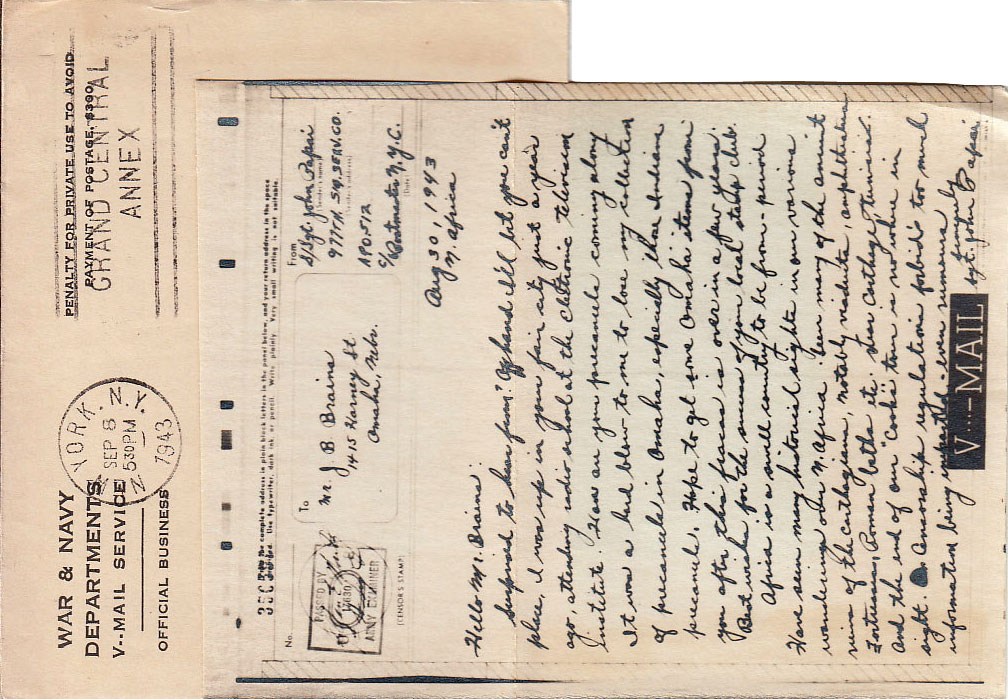 WAR & NAVY
DEPARTMENTS
V--MAIL SERVICE
OFFICIAL BUSINESS
YORK, N.Y.
SEP 8
5 30 PM
1943
PENALTY FOR PRIVATE USE TO AVOID
PAYMENT OF POSTAGE, $300
GRAND CENTRAL
ANNEX
the complete address in plain block letters in the panel below, and your return address in the space
Use typewriter, dark ink, or pencil. Write plainly. Very small writing is not suitable.
No.
PASSED BY
ARMY EXAMINER
(CENSOR'S STAMP)
To
Mr. J B Brains
1415 Harney St
Omaha, Nebr.
From
S/Sgt John Papai
(Sender's name)
977TH Sig. Serv. Co.
APO. 512
c/o Postmaster N.Y.C.
(Date)
Aug 30, 1943
N. Africa
Hello Mr. Brains:
Surprised to hear from? Offhand I'll bet you can't
place, I was up in your fair city just a year
ago attending radio school at the electronic television
institute. How are your precancels coming along
It was a hard blow to me to lose my collection
of precancels in Omaha, especially those Indian
precancels. Hope to get some Omaha items from
you after this fracas is over in a few years.
Best wishes for the success of your local stamp club.
Africa is a swell country to be from - period
Have seen many historical sights in our various
wanderings over N. Africa. Seen many of the ancient
ruins of the Carthagians, notably viaducts, amphitheaters
Fortresses, Roman baths etc. Seen Carthage, Tunisia.
And the end of our "Cook's" tour is no where in
sight. Censorship regulations forbids too much
information being imparted even numerals
Sincerely
Sgt. John Papai
V···—MAIL